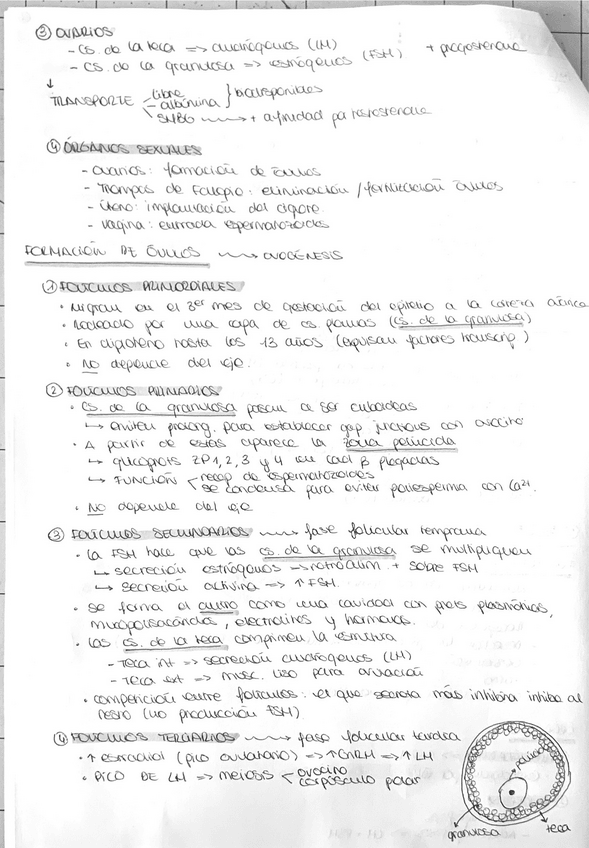 ③ OVARIOS
- Cs. de la teca => andrógenos (LH)
- Cs. de la granulosa => estrógenos (FSH) + progesterona
↓
TRANSPORTE
libre
- albúmina } biodisponibles
SHBG ⟿ + afinidad pa testosterona
④ ÓRGANOS SEXUALES
- Ovarios: formación de óvulos
- Trompas de Falopio: eliminación / fertilización óvulos
- Útero: implantación del cigoto
- Vagina: entrada espermatozoides
FORMACIÓN DE ÓVULOS ⟿ OVOGÉNESIS
① FOLÍCULOS PRIMORDIALES
• Migran en el 3er mes de gestación del epitelio a la corteza
• Rodeado por una capa de cs planas (cs. de la granulosa)
• En diploteno hasta los 13 años (expresan factores transcrip)
• NO depende del eje.
② FOLÍCULOS PRIMARIOS
• Cs. de la granulosa pasan a ser cuboideas
↳ emiten prolong. para establecer gap junctions con ovocito
• A partir de estas aparece la zona pelúcida
↳ glucoprots ZP1, 2, 3 y 4 con cad β plegadas
↳ FUNCIÓN < recep de espermatozoides
se condensa para evitar poliespermia con Ca2+.
• NO depende del eje
③ FOLÍCULOS SECUNDARIOS ⟿ fase folicular temprana
• La FSH hace que las cs. de la granulosa se multipliquen
↳ secreción estrógenos -> retroalim. + sobre FSH
↳ secreción activina => ↑ FSH.
• Se forma el antro como una cavidad con prots plasmáticas,
mucopolisacáridos, electrolitos y hormonas.
• Las cs. de la teca comprimen la estructura
- Teca int => secreción andrógenos (LH)
- Teca ext => musc. liso para ovulación
• Competición entre folículos: el que secreta más inhibina inhibe al
resto (no producción FSH)
④ FOLÍCULOS TERCIARIOS ⟿ fase folicular tardía
• ↑ estradiol (pico ovulatorio) => ↑ GnRH => ↑ LH
• PICO DE LH => meiosis < ovocito
corpúsculo polar
granulosa
teca